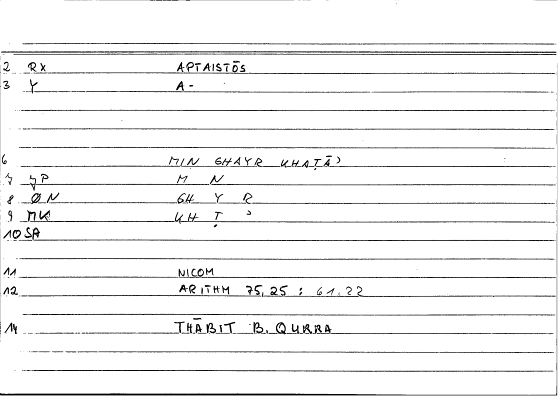 2 RX APTAISTŌS
3 Y A-
6 MIN GHAYR KHAṬĀʾ
7 JP M N
8 ØN GH Y R
9 MK KH Ṭ ʾ
10 SA
11 NICOM
12 ARITHM 75,25 : 61,22
14 THĀBIT B. QURRA